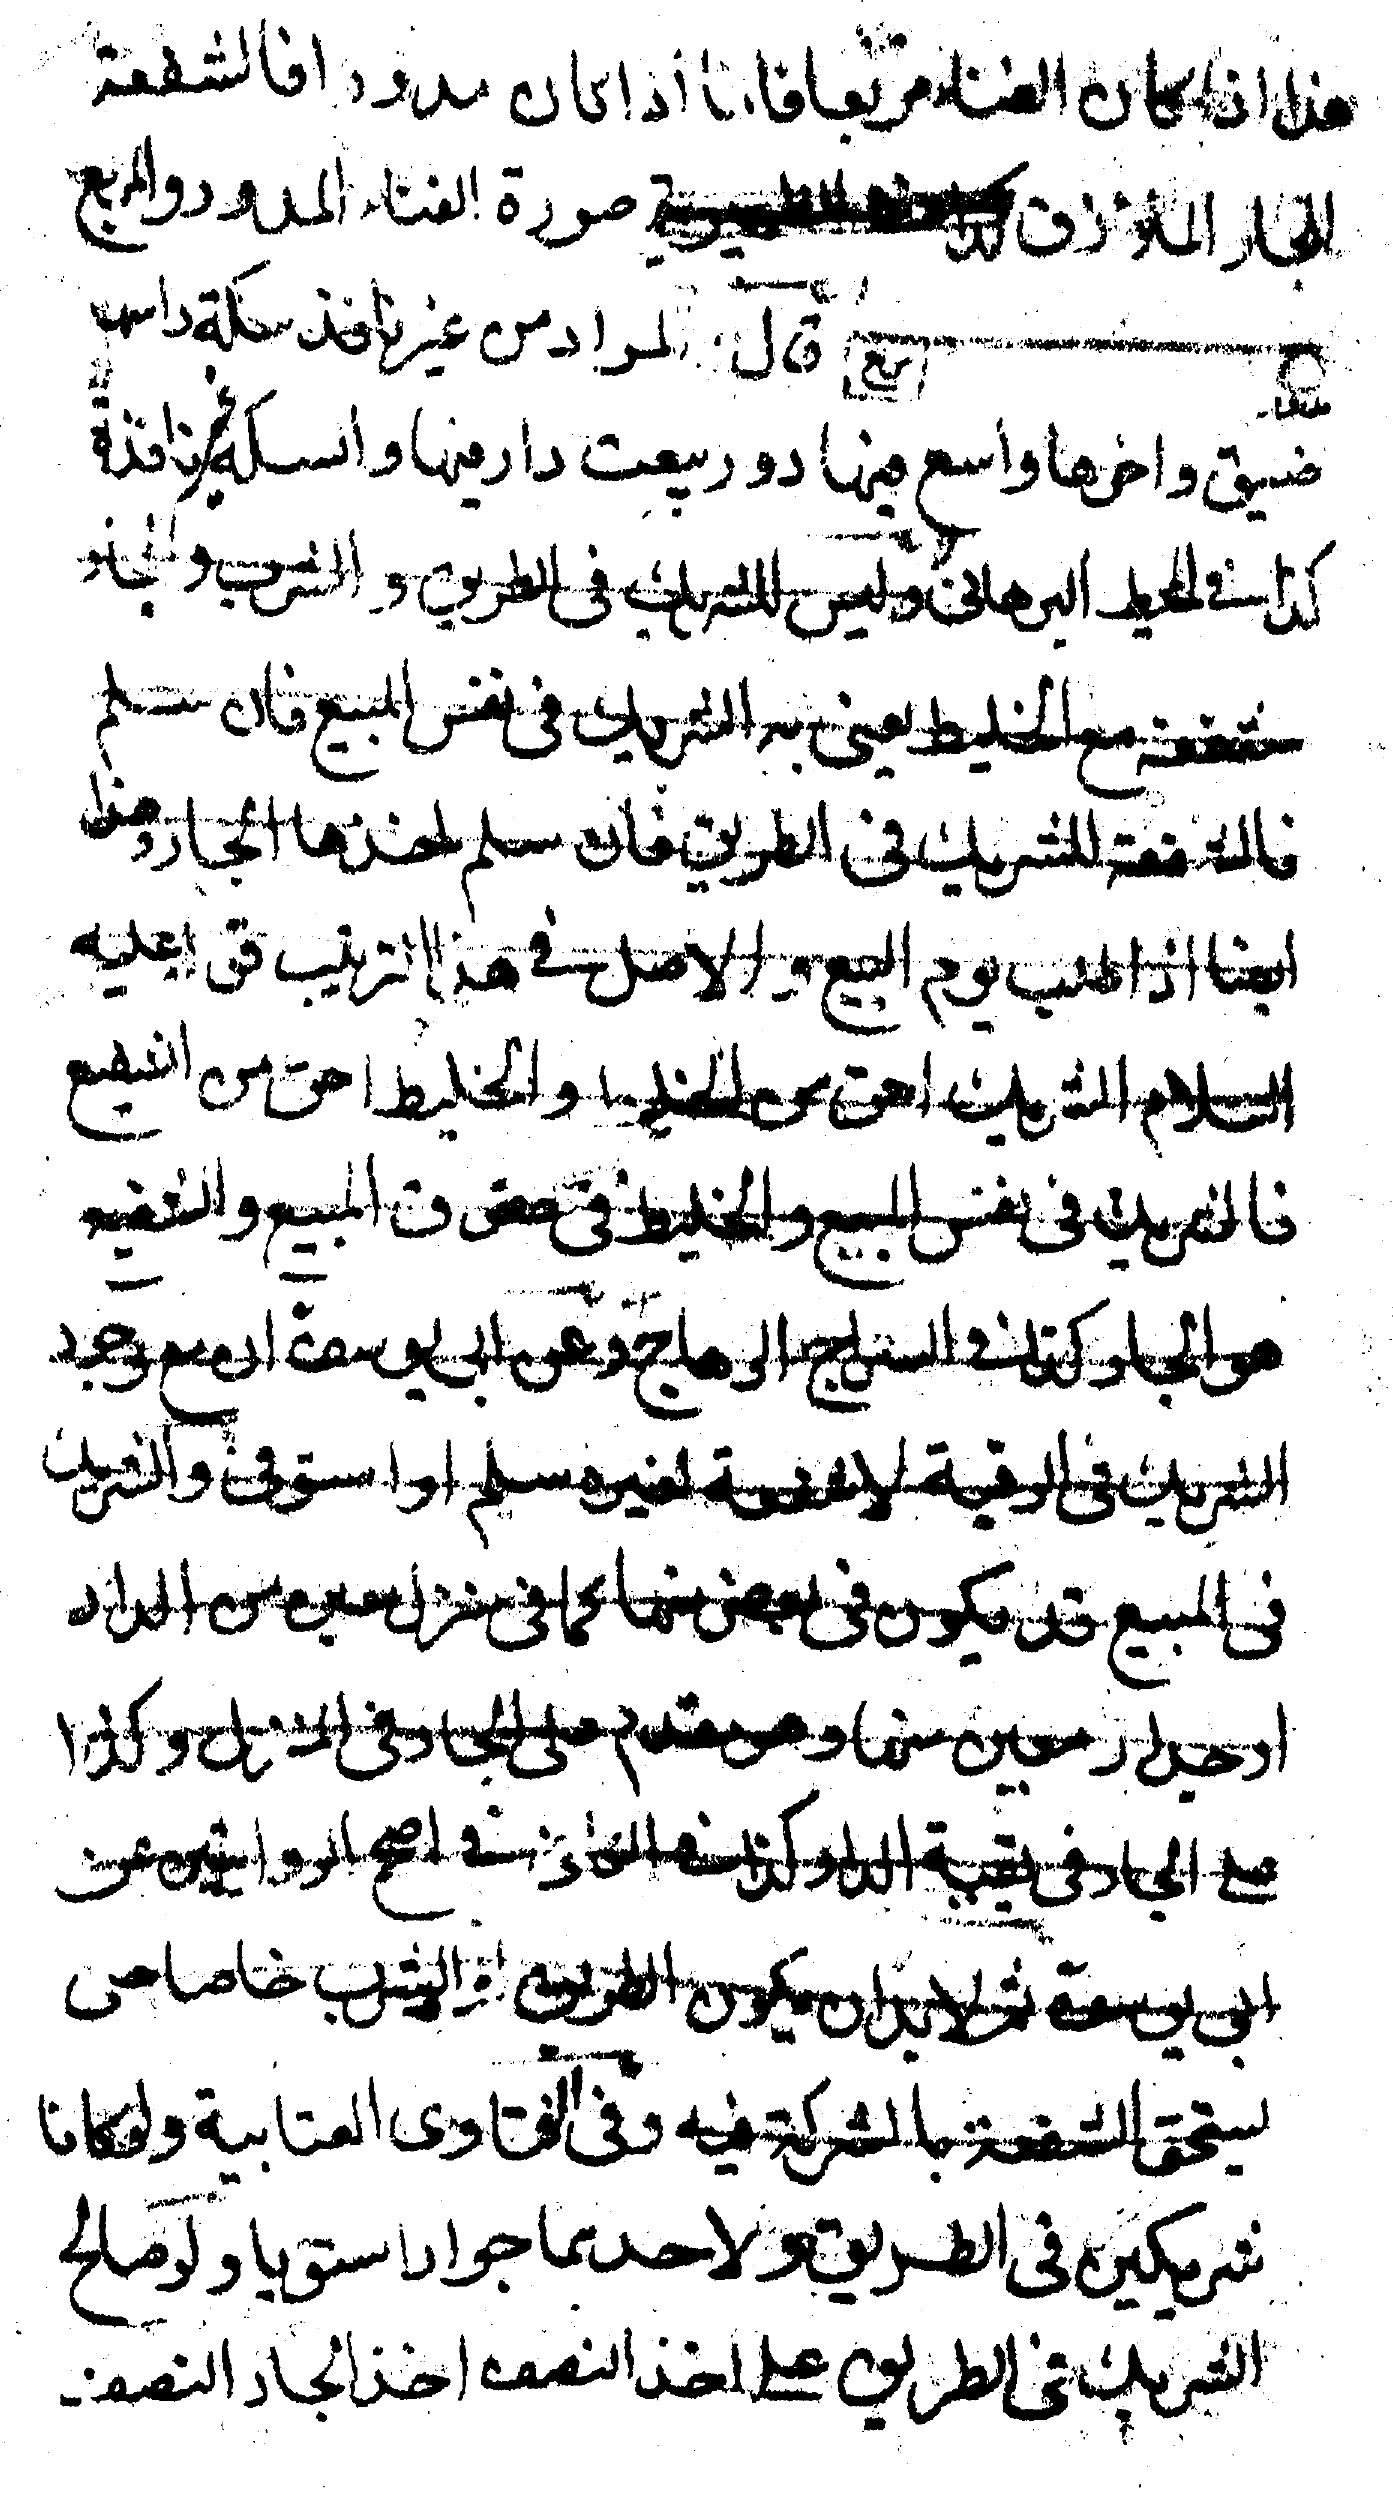 هذا اذا كان الفناء مربعا فاما اذا كان مدودا فالشفعة
للجار الملازق كذا صورة الفناء المدور والمربع
مربع مدور قال المراد من غير نافذ سكة راسها
ضيق واخرها واسع فيها دور بيعت دار فيها والسكة غير نافذة
كذا في المحيط البرهاني وليس للشريك في الطريق و الشرب والجار
شفعة مع الخليط يعني به الشريك في نفس المبيع فان سلم
فالشفعة للشريك في الطريق فان سلم اخذها الجار وهذا
ايضا اذا طلب يوم البيع و الاصل في هذا الترتيب قوله عليه
السلام الشريك احق من الخليط والخليط احق من الشفيع
فالشريك في نفس المبيع والخليط في حقوق المبيع والشفيع
هو الجار كذا في السراج الوهاج وعن ابي يوسف ان مع وجود
الشريك في الرقبة لا شفعة لغيره سلم او استوفى والشريك
في المبيع قد يكون في بعض منها كما في منزل معين من الدار
او جدار معين منها وهو مقدم على الجار في المنزل وكذا
على الجار في بقية الدار كذا في الكافي في اصح الروايتين عن
ابي يوسف ثم لا بد ان يكون الطريق او الشرب خاصا حتى
يستحق الشفعة بالشركة فيه وفي الفتاوى العتابية ولو كانا
شريكين في الطريق ولاحدهما جوار استويا ولو صالح
الشريك في الطريق على اخذ النصف اخذ الجار النصف